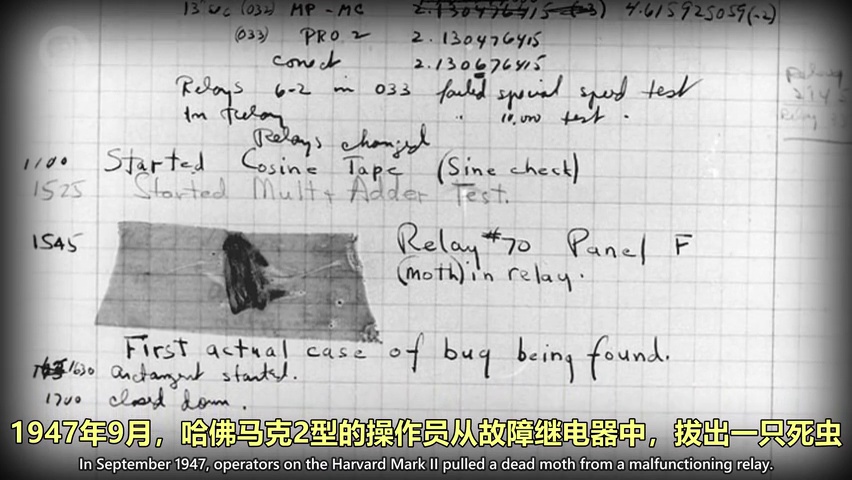 13" uc (032) MP - MC 2.130476415 (-3) 4.615925059(-2)
(033) PRO 2 2.130476415
conect 2.130676415
Relays 6-2 in 033 failed special speed test
In Relay " 10,000 test .
Relays changed
1100 Started Cosine Tape (Sine check)
1525 Started Mult + Adder Test.
1545 Relay #70 Panel F
(moth) in relay.
First actual case of bug being found.
1630 arctangent started.
1700 closed down.
1947年9月，哈佛马克2型的操作员从故障继电器中，拔出一只死虫
In September 1947, operators on the Harvard Mark II pulled a dead moth from a malfunctioning relay.